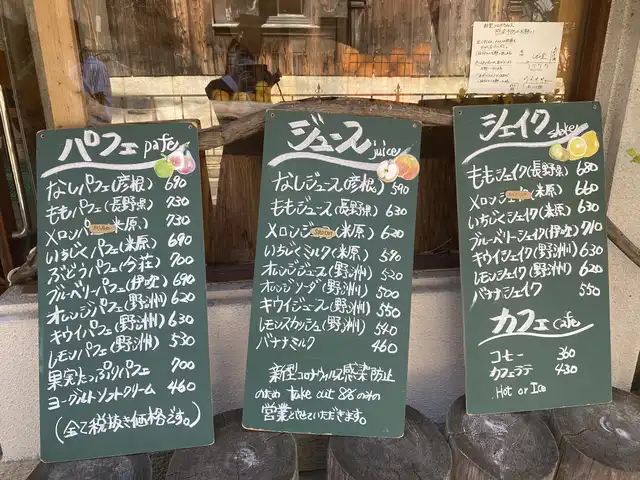 パフェ pafe
なしパフェ(彦根) 690
ももパフェ(長野県) 730
メロンパ (米原) 730
いちじくパフェ(米原) 690
ぶどうパフェ(今荘) 700
ブルーベリーパフェ(伊吹) 690
オレンジパフェ(野洲) 620
キウイパフェ(野洲) 630
レモンパフェ(野洲) 530
果実たっぷりパフェ 700
ヨーグルトソフトクリーム 460
(全て税抜き価格です。)
ジュース juice
なしジュース(彦根) 590
ももジュース(長野県) 630
メロンジ (米原) 620
いちじくミルク(米原) 590
オレンジジュース(野洲) 520
オレンジソーダ(野洲) 500
キウイジュース(野洲) 550
レモンスカッシュ(野洲) 540
バナナミルク 460
新型コロナウィルス感染防止
のため take out のみの
営業とさせていただきます。
シェイク shake
ももシェイク(長野県) 680
メロンシェイク(米原) 660
いちじくシェイク(米原) 630
ブルーベリーシェイク(伊吹) 710
キウイシェイク(野洲) 630
レモンシェイク(野洲) 620
バナナシェイク 550
カフェ cafe
コーヒー 360
カフェラテ 430
Hot or Ice